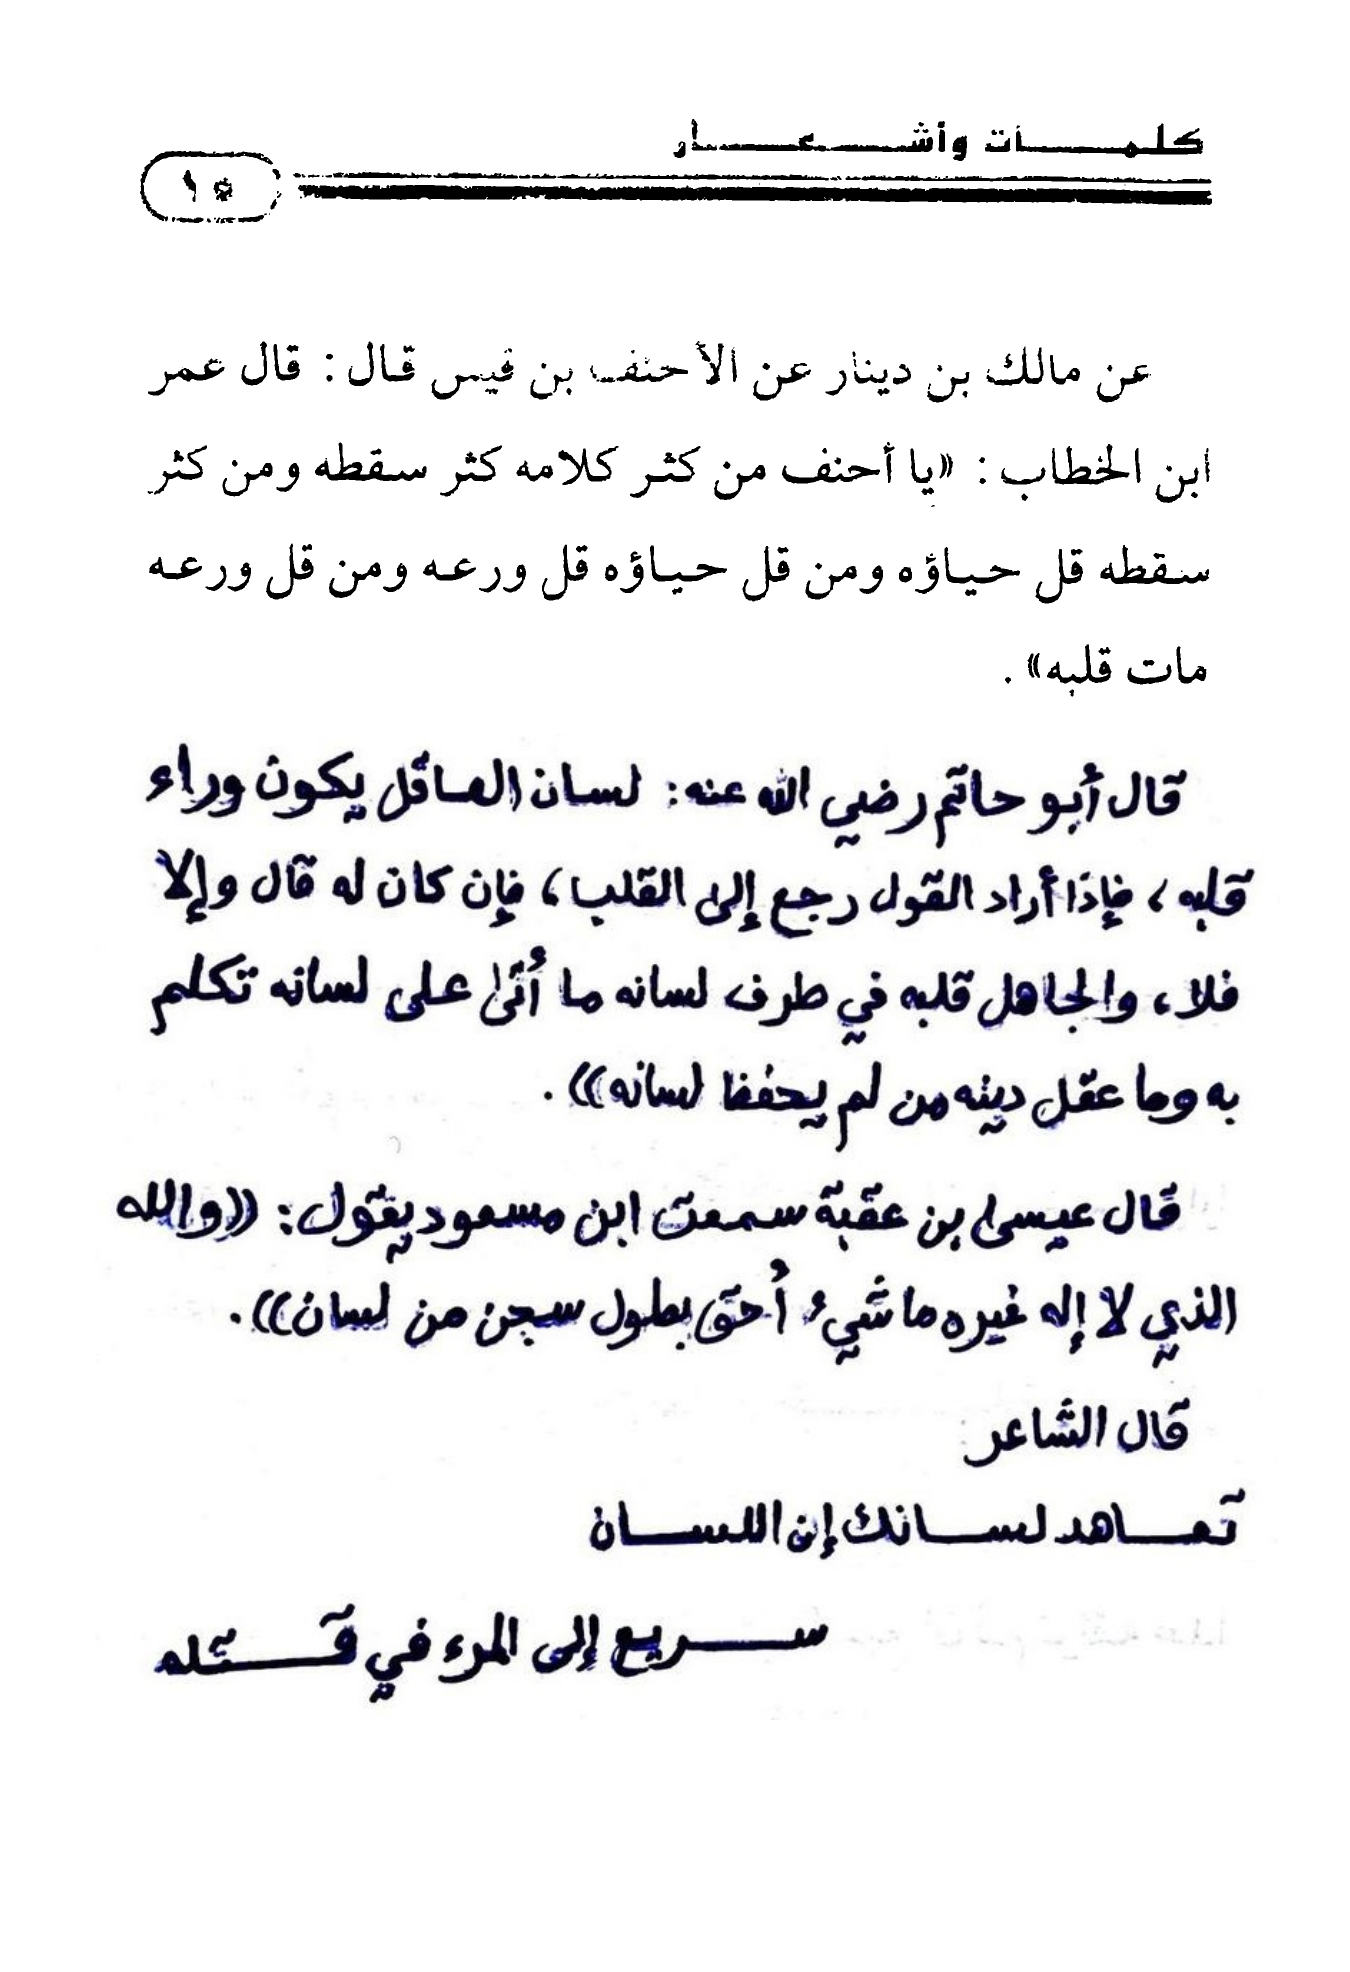 كلمات وأشعار
١٥
عن مالك بن دينار عن الأحنف بن قيس قال : قال عمر
ابن الخطاب : «يا أحنف من كثر كلامه كثر سقطه ومن كثر
سقطه قل حياؤه ومن قل حياؤه قل ورعه ومن قل ورعه
مات قلبه» .
قال أبو حاتم رضي الله عنه: لسان العاقل يكون وراء
قلبه، فإذا أراد القول رجع إلى القلب، فإن كان له قال وإلا
فلا، والجاهل قلبه في طرف لسانه ما أتى على لسانه تكلم
به وما عقل دينه من لم يحفظ لسانه)).
قال عيسى بن عقبة سمعت ابن مسعود يقول: ((والله
الذي لا إله غيره ما شيء أحق بطول سجن من لسان)).
قال الشاعر
تعاهد لسانك إن اللسان
سريع إلى المرء في قتله